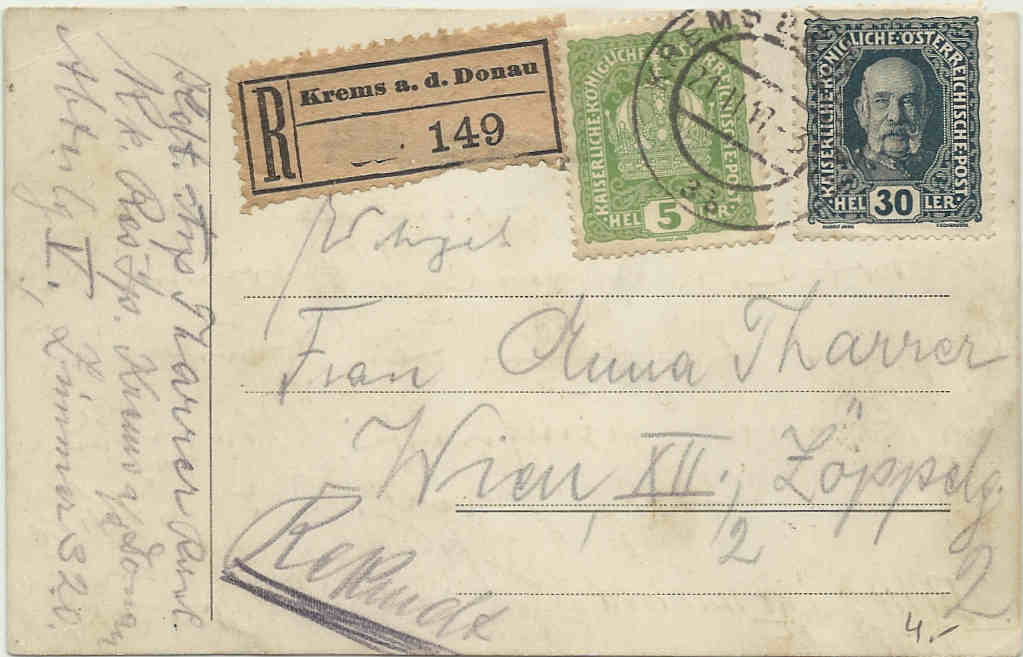 R
Krems a. d. Donau
149
KAISERLICHE KÖNIGLICHE ÖSTERREICHISCHE POST
HELLER
5
KREMS
KAISERLICHE KÖNIGLICHE ÖSTERREICHISCHE POST
HELLER
30
Frau Anna Tharrer
Wien XII., Zöppelg.
2
2
Rekmdt
4.-
Tharrer
k. k. Res. Sp. Krems a/Donau
Abteilg V, Zimmer 320.